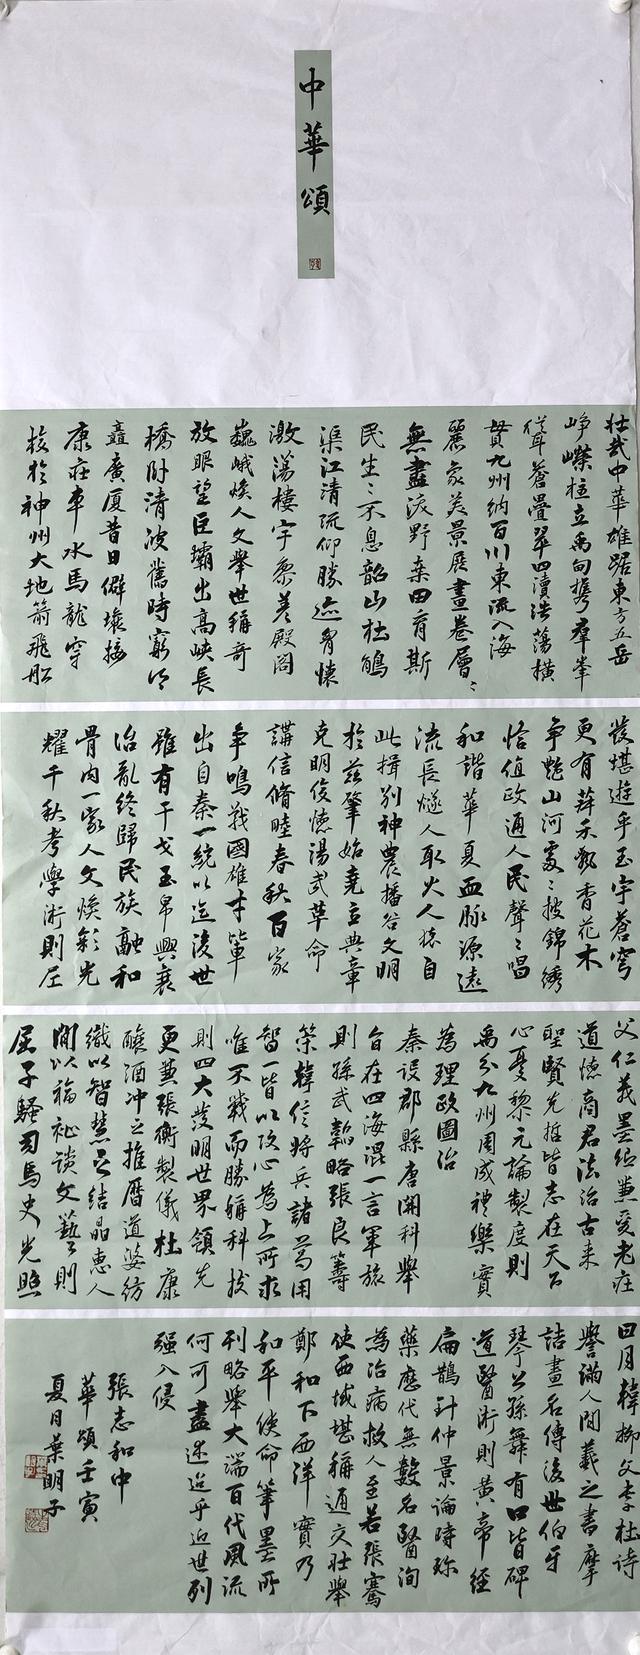 中華頌
壯哉中華雄踞東方五岳
崢嶸柱立禹甸攜群峯
聳蒼疊翠四瀆浩蕩橫
貫九州納百川東流入海
麗象美景展畫卷層〻
無盡沃野桑田育斯
民生〻不息韶山杜鵑
渠江清流仰勝迹胸懷
激蕩樓宇參差殿閣
巍峨煥人文舉世稱奇
放眼望巨壩出高峽長
橋卧清波舊時窮
矗廣厦昔日僻壤接
康莊車水馬龍穿
梭於神州大地箭飛船
發堪遊乎玉宇蒼穹
更有莽禾飄香花木
争艷山河處〻披錦綉
恰值政通人民聲〻唱
和諧華夏血脉源遠
流長燧人取火人猿自
此揖别神農播谷文明
於兹肇始堯立典章
克明俊德湯武革命
講信脩睦春秋百家
争鳴戰國雄才輩
出自秦一統以迄後世
雖有干戈玉帛興衰
治亂終歸民族融和
骨肉一家人文焕彩光
耀千秋考學術則孔
父仁義墨俏兼愛老莊
道德商君法治古来
聖賢先哲皆志在天下
心憂黎元論製度則
禹分九州周成禮樂實
為理政圖治
秦設郡縣唐開科舉
旨在四海混一言軍旅
則孫武韜略張良籌
策韓信將兵諸葛用
智一皆以攻心為上所求
唯不戰而勝稱科技
則四大發明世界領先
更兼張衡製儀杜康
釀酒冲之推曆道婆紡
織以智慧之結晶惠人
間以福祉談文藝則
屈子騷司馬史光照
日月韓柳文李杜詩
譽滿人間羲之書摩
詰畫名傳後世伯牙
琴公孫舞有口皆碑
道醫術則黄帝經
扁鵲針仲景論時珍
藥歷代無數名醫洵
為治病救人至若張騫
使西域堪稱通交壯舉
鄭和下西洋實乃
和平使命筆墨所
刊略舉大端百代風流
何可盡述迨乎近世列
强入侵
張志和中
華頌壬寅
夏月葉明子